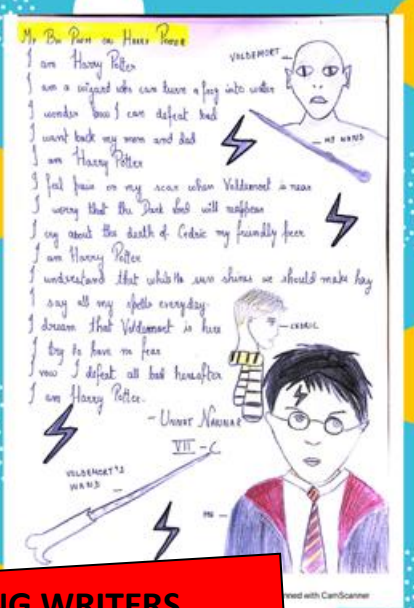 My Bio Poem on Harry Potter
I am Harry Potter
I am a wizard who can turn a frog into water
I wonder how I can defeat bad
I want back my mom and dad
I am Harry Potter
I feel pain on my scar when Voldemort is near
I worry that the Dark lord will reappear
I cry about the death of Cedric my friendly peer
I am Harry Potter
I understand that while the sun shines we should make hay
I say all my spells everyday.
I dream that Voldemort is here
I try to have no fear
I vow I defeat all bad hereafter
I am Harry Potter.
- Unnat Navnar
VII - C
VOLDEMORT
MY WAND
CEDRIC
VOLDEMORT'S
WAND
ME
NG WRITERS
nned with CamScanner